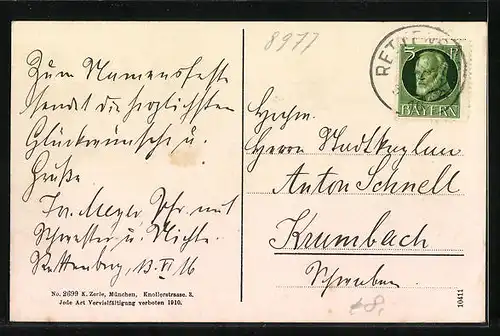 Zum Namensfeste
sendet die herzlichsten
Glückwünsche u.
Grüße
Jos. Meyer, Pfr. mit
Schwester u. Nichte.
Rettenberg, 13. VI 16
No. 2699 K. Zerle, München, Knollerstrasse. 3.
Jede Art Vervielfältigung verboten 1910.
8977
RETTENB
5 Pf
BAYERN
Hochw.
Herrn Stadtkaplan
Anton Schnell
Krumbach
Schwaben.
10411